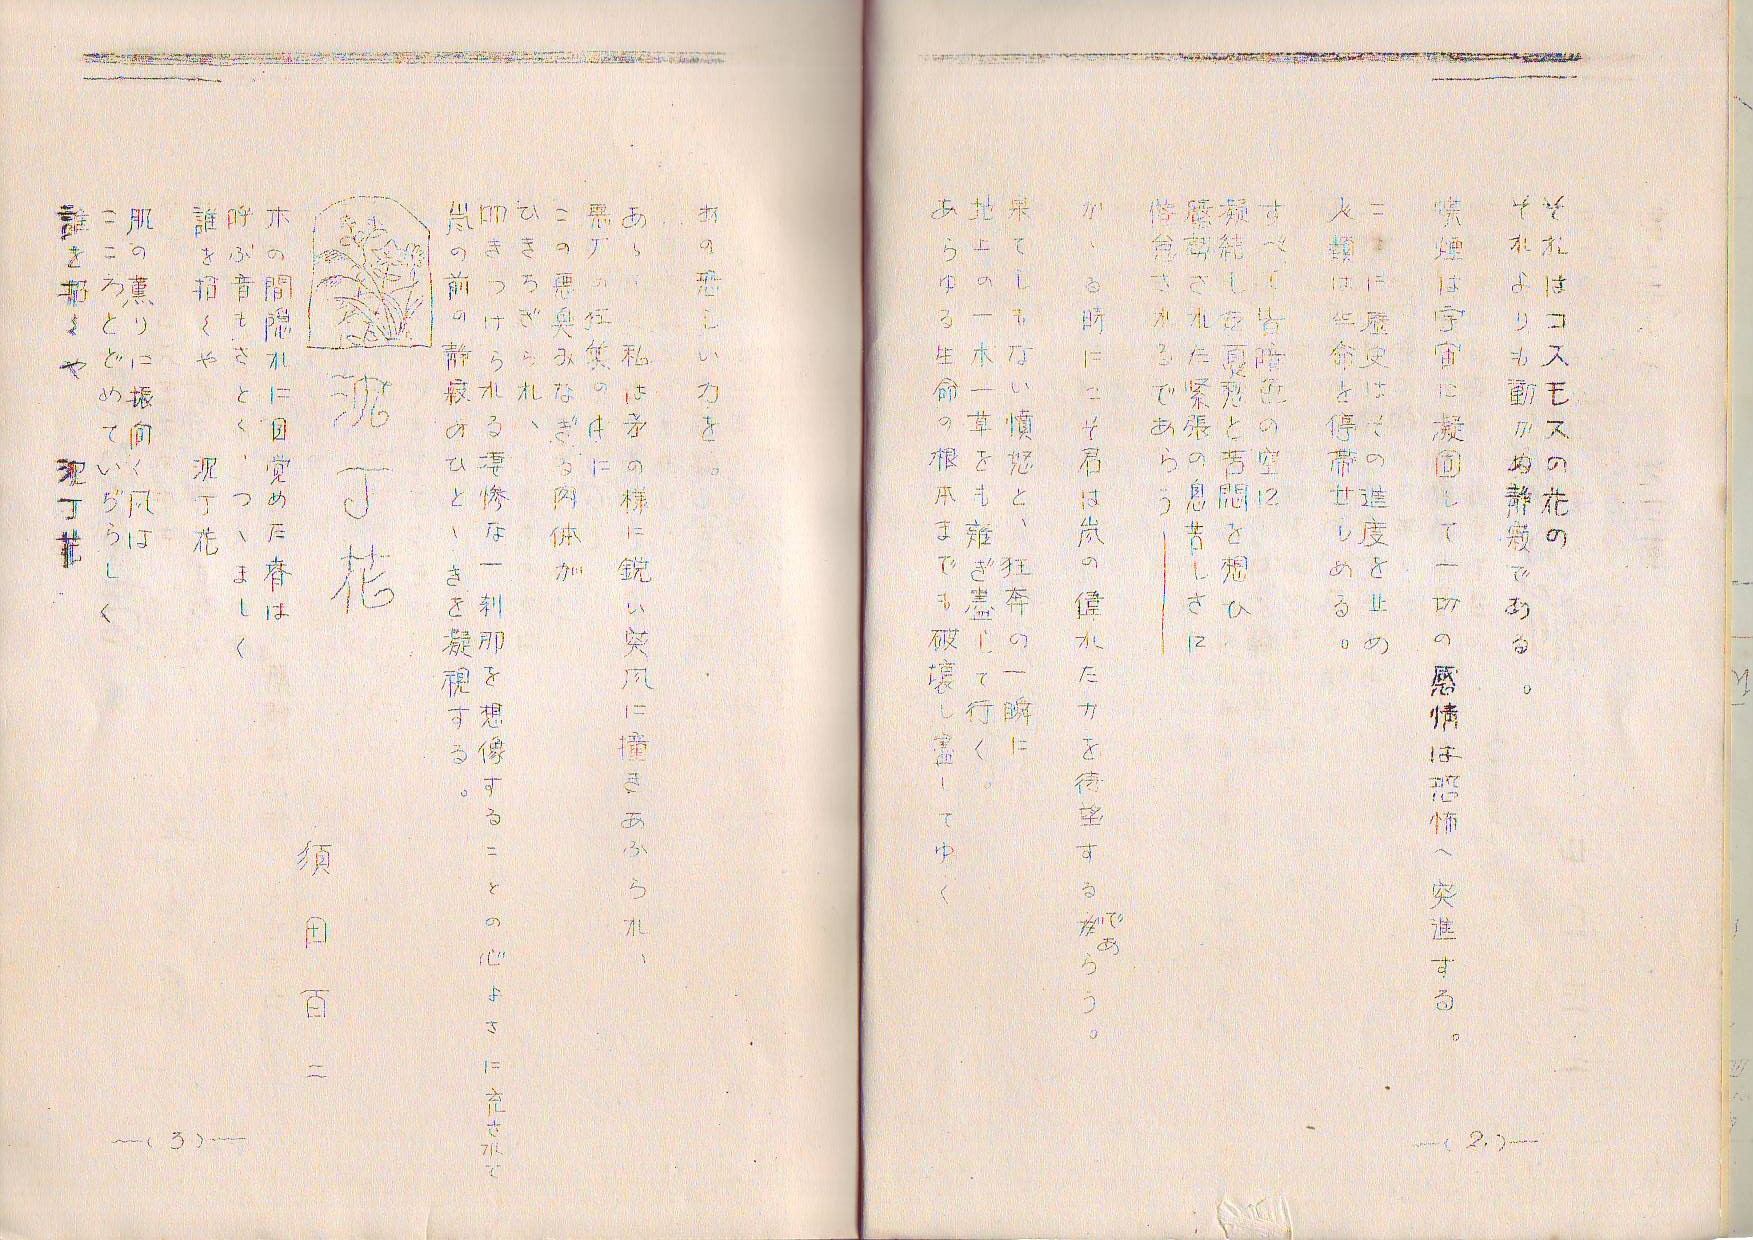 それはコスモスの花の
それよりも動かぬ静寂である。
噴煙は宇宙に凝固して一切の感情は恐怖へ突進する。
こゝに歴史はその進度を止め
人類は生命を停帯せしめる。
すべて皆暗色の空に
凝結した憂愁と苦悶を想ひ
圧縮された緊張の息苦しさに
倦怠されるであらう――
かゝる時にこそ君は嵐の偉れた力を待望するであらう。
果てしもない憤怒と、狂奔の一瞬に
地上の一木一草をも薙ぎ盡して行く。
あらゆる生命の根本までも破壊し盡してゆく
―( 2 )―
あの恐しい力を。
あゝ、私は矛の様に鋭い突風に撞きあふられ、
悪夢の狂奏の中に
この悪臭みなぎる肉体が
ひきちぎられ、
叩きつけられる凄惨な一刹那を想像することの心よさに充されて
嵐の前の静寂のひとゝきを凝視する。
沈丁花
須田百二
木の間隠れに目覚めた春は
呼ぶ音もさとく、つゝましく
誰を招くや 沈丁花
肌の薫りに振向く風は
こころとどめていぢらしく
誰を招くや 沈丁花
―( 3 )―